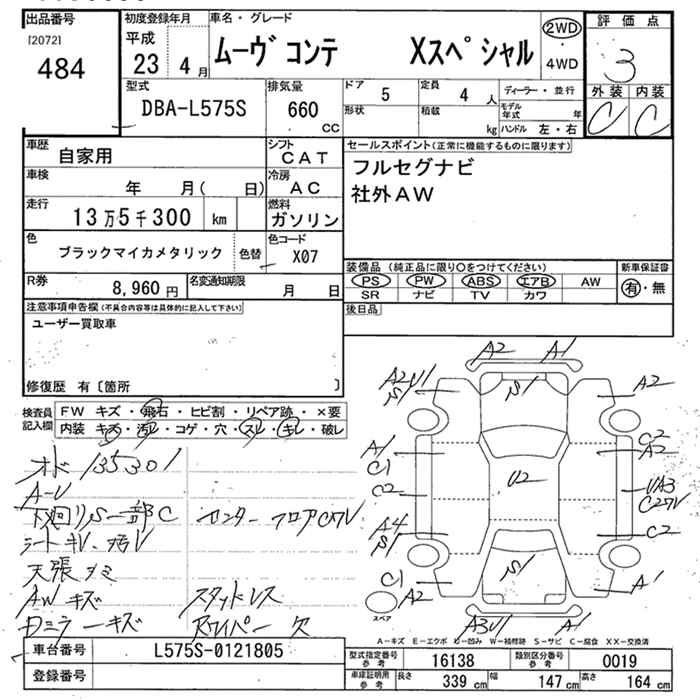 出品番号
[2072]
484
初度登録年月
平成
23 4月
車名・グレード
ムーヴ コンテ Xスペシャル
2WD
・
4WD
評価点
3
外装 内装
C C
型式
DBA-L575S
排気量
660
CC
ドア 5
定員 4 人
ディーラー・並行
形状
積載 kg
モデル年式 年
ハンドル 左・右
車歴 自家用
シフト CAT
車検 年 月( 日)
冷房 AC
走行 13万5千300 km
燃料 ガソリン
色 ブラックマイカメタリック 色替
色コード X07
R券 8,960 円
名変通知期限 月 日
セールスポイント(正常に機能するものに限ります)
フルセグナビ
社外AW
装備品 (純正品に限り○をつけてください)
新車保証書
PS PW ABS エアB AW
有・無
SR ナビ TV カワ
後日品
注意事項申告欄(不具合内容等は具体的に記入して下さい)
ユーザー買取車
修復歴 有〔箇所 〕
検査員記入欄
FW キズ・飛石・ヒビ割・リペア跡・×要
内装 キズ・汚レ・コゲ・穴・スレ・キレ・破レ
オド 135301
A-U
下廻りS一部C センターフロアC穴V
シートキレ・汚レ
天張シミ
AWキズ スタッドレス
Dミラーキズ Rワイパー欠
A2 A1
A2U1 S1 S1 A2
A1 C1 C2 A2
C2 U2 UA3 C2穴V
A4 S1 C2
C1 S1 A1
A2
スペア
A3U1 A1
A－キズ E－エクボ U－凹み W－補修跡 S－サビ C－腐食 XX－交換済
車台番号 L575S-0121805
登録番号
型式指定番号 参考 16138
類別区分番号 参考 0019
車庫証明用 参考 長さ 339 cm 幅 147 cm 高さ 164 cm